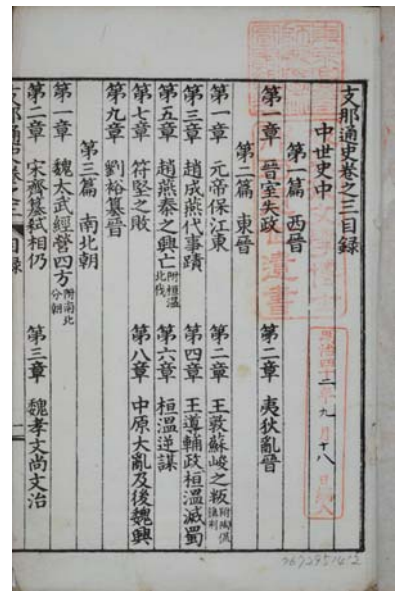 支那通史卷之三目錄
中世史中
第一篇 西晉
第一章 晉室失政 第二章 夷狄亂晉
第二篇 東晉
第一章 元帝保江東 第二章 王敦蘇峻之叛
第三章 趙成燕代事蹟 第四章 王導輔政桓溫滅蜀
第五章 趙燕秦之興亡 附桓溫北伐 第六章 桓溫逆謀
第七章 符堅之敗 第八章 中原大亂及後魏興
第九章 劉裕簒晉
第三篇 南北朝
第一章 魏太武經營四方 附南北分朝
第二章 宋齊簒弒相仍 第三章 魏孝文尚文治
支那通史卷之三 目錄 一
明治四十二年九月十八日